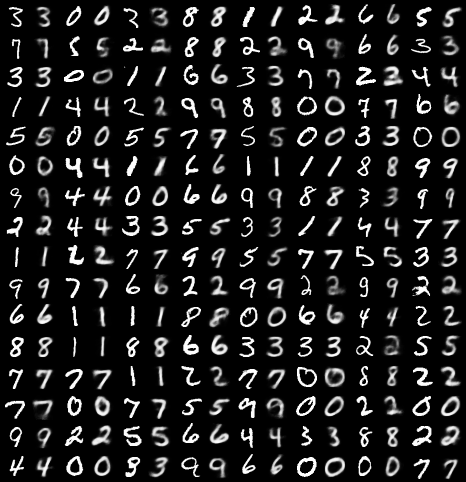 3 3 0 0 3 3 8 8 1 1 2 2 6 6 5 5
7 7 5 5 2 2 8 8 2 2 9 9 6 6 3 3
3 3 0 0 1 1 6 6 3 3 7 7 2 2 4 4
1 1 4 4 2 2 9 9 8 8 0 0 7 7 6 6
5 5 0 0 5 5 7 7 5 5 0 0 3 3 0 0
0 0 4 4 1 1 6 6 1 1 1 1 8 8 9 9
9 9 4 4 0 0 6 6 9 9 8 8 3 3 9 9
2 2 4 4 3 3 5 5 3 3 1 1 4 4 7 7
1 1 2 2 7 7 9 9 5 5 7 7 5 5 3 3
9 9 7 7 6 6 2 2 9 9 2 2 9 9 2 2
6 6 1 1 1 1 8 8 0 0 6 6 4 4 2 2
8 8 1 1 8 8 6 6 3 3 3 3 2 2 5 5
7 7 7 7 1 1 2 2 7 7 0 0 8 8 2 2
7 7 0 0 7 7 5 5 9 9 0 0 2 2 0 0
9 9 2 2 5 5 6 6 4 4 3 3 8 8 2 2
4 4 0 0 3 3 9 9 6 6 0 0 0 0 7 7